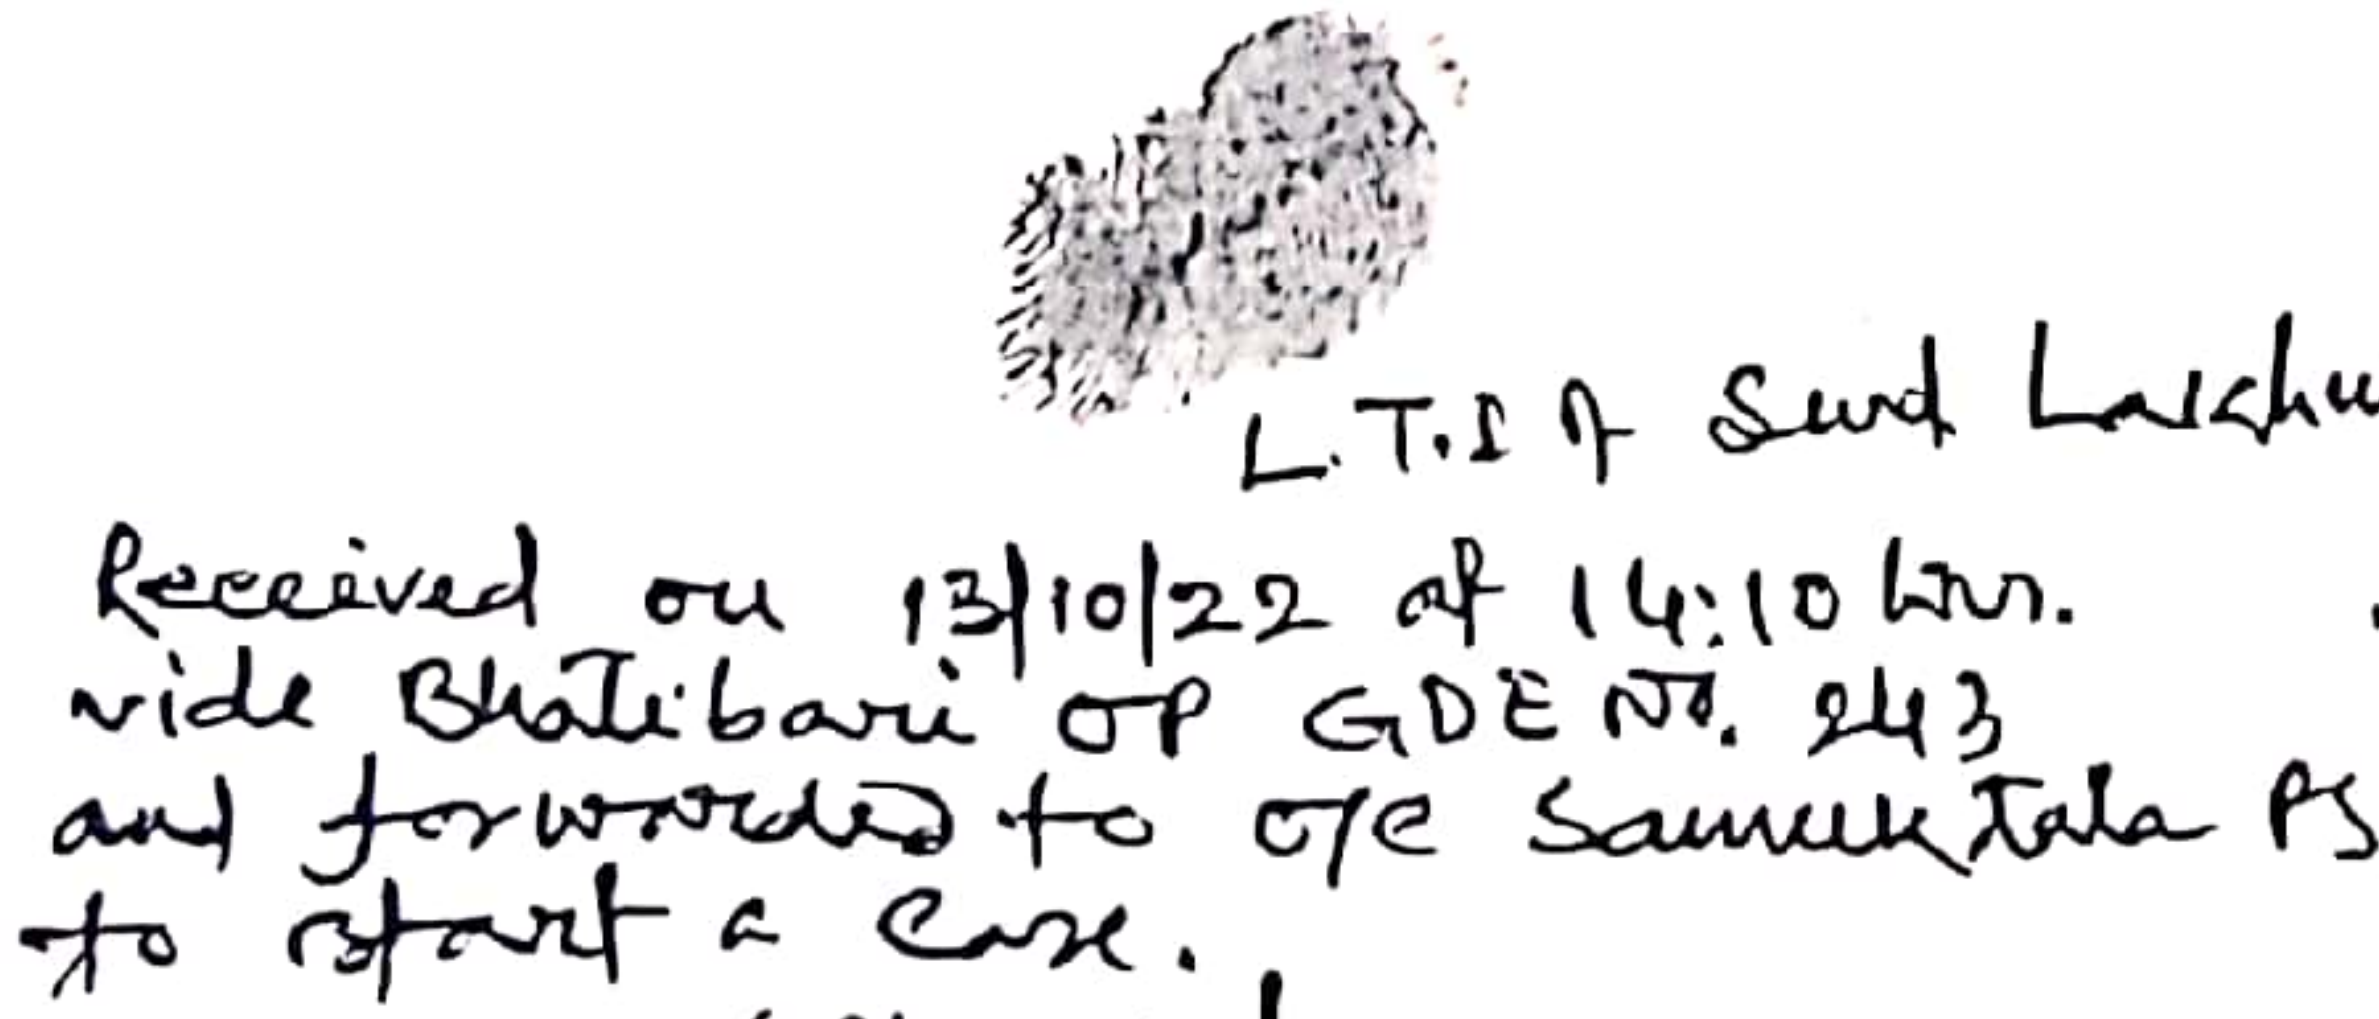 L.T.I of Smt Lakshu
Received on 13/10/22 at 14:10 hrs.
vide Bhatibari OP GDE No. 243
and forwarded to O/C Samuktala PS
to start a case.